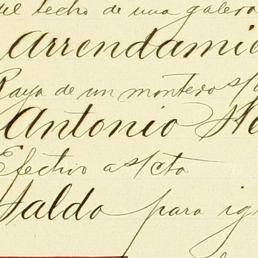 techo de una galera
Arrendamie
Raya de un montero s/
Antonio
Efectivo a s/cta
Saldo para ig